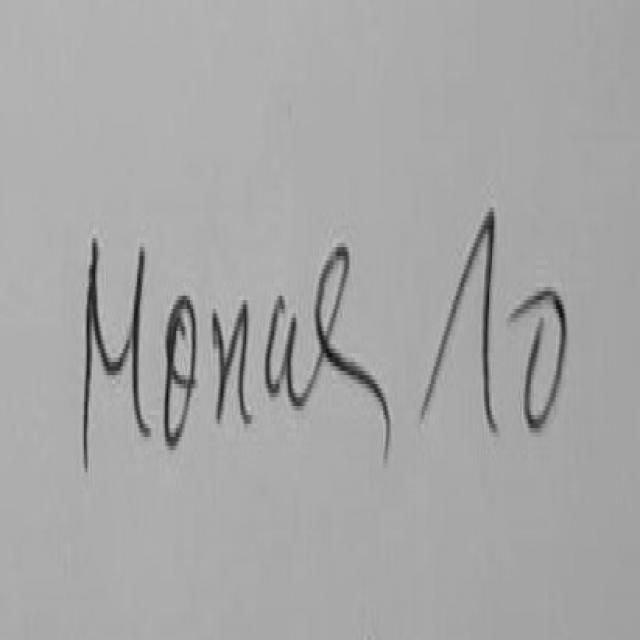 Monat 10